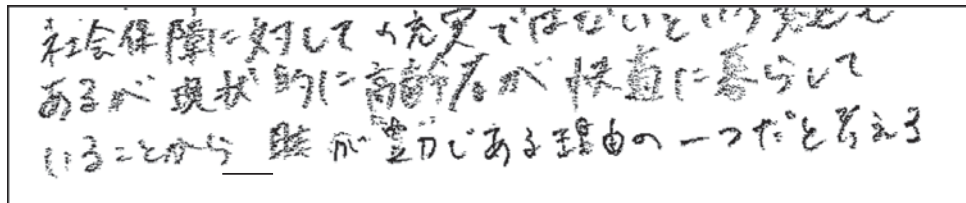 社会保障に対して充実ではないという意見も
あるが現状的に高齢者が快適に暮らして
いることからが豊かである理由の一つだと考える